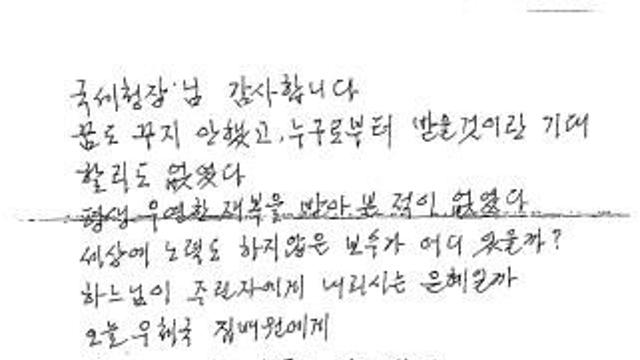 국세청장님 감사합니다
꿈도 꾸지 안했고, 누구로부터 받을것이란 기대
할리도 없었다
평생 우연한 재복을 받아 본 적이 없었다
세상에 노력도 하지않은 보수가 어디 있을까?
하느님이 주린자에게 내리시는 은혜일까
오늘 우체국 집배원에게